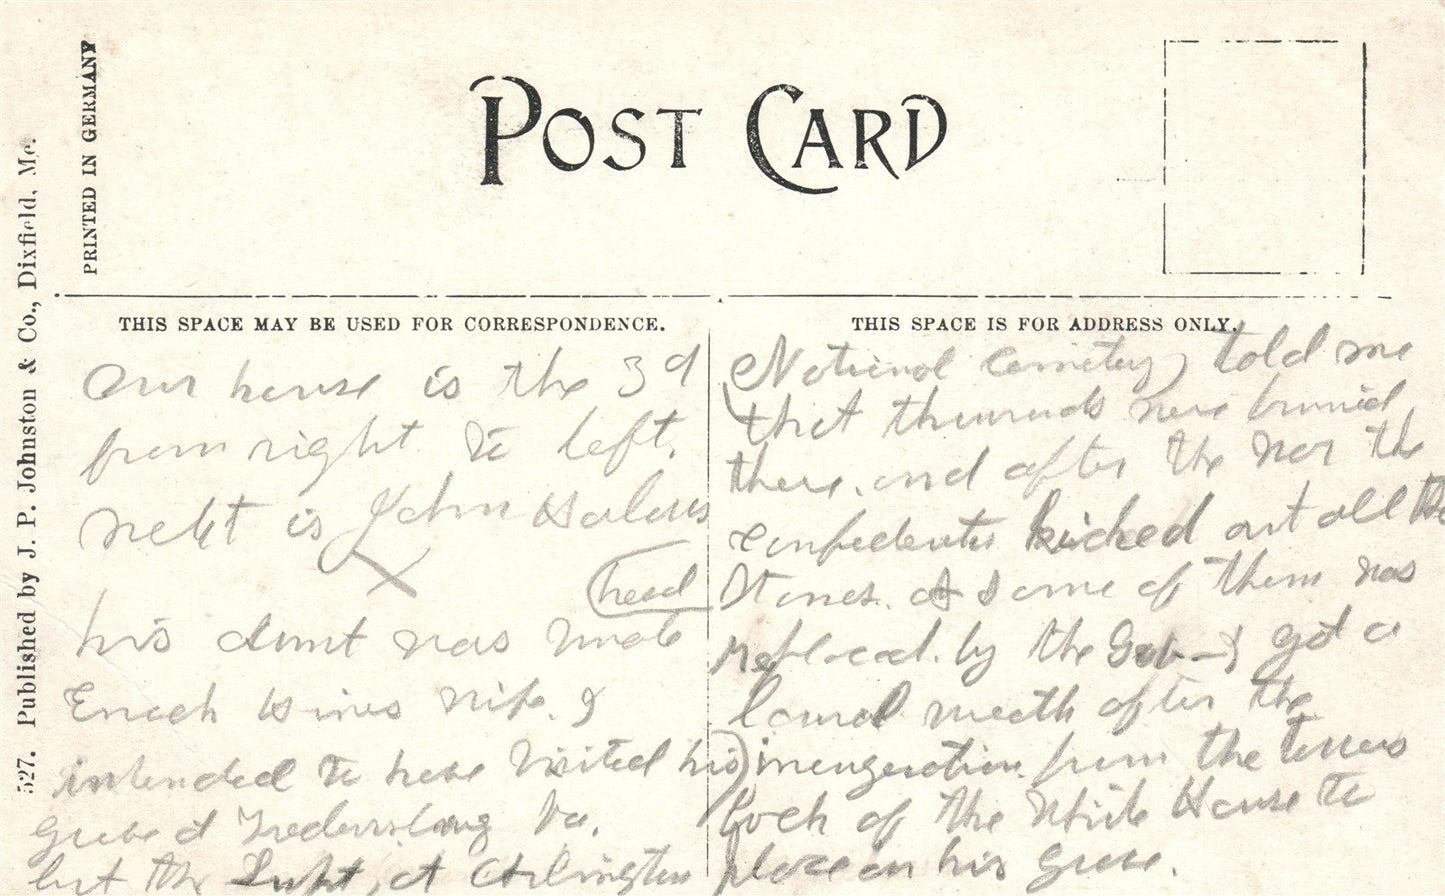 PRINTED IN GERMANY
527. Published by J. P. Johnston & Co., Dixfield, Me.
POST CARD
THIS SPACE MAY BE USED FOR CORRESPONDENCE.
Our house is the 3d
from right to left.
next is John
head
his Aunt was
Enoch wife. I
intended to have visited his
Grave at Fredericksburg Va.
but the Supt, at Arlington
THIS SPACE IS FOR ADDRESS ONLY.
(National Cemetery) told me
that thousands were burried
there. and after the war the
Confederates kicked out all the
Stones. & some of them was
replaced. by the Gov- I got a
laurel wreath after the
inauguration from the terrace
back of the White House to
place on his Grave.